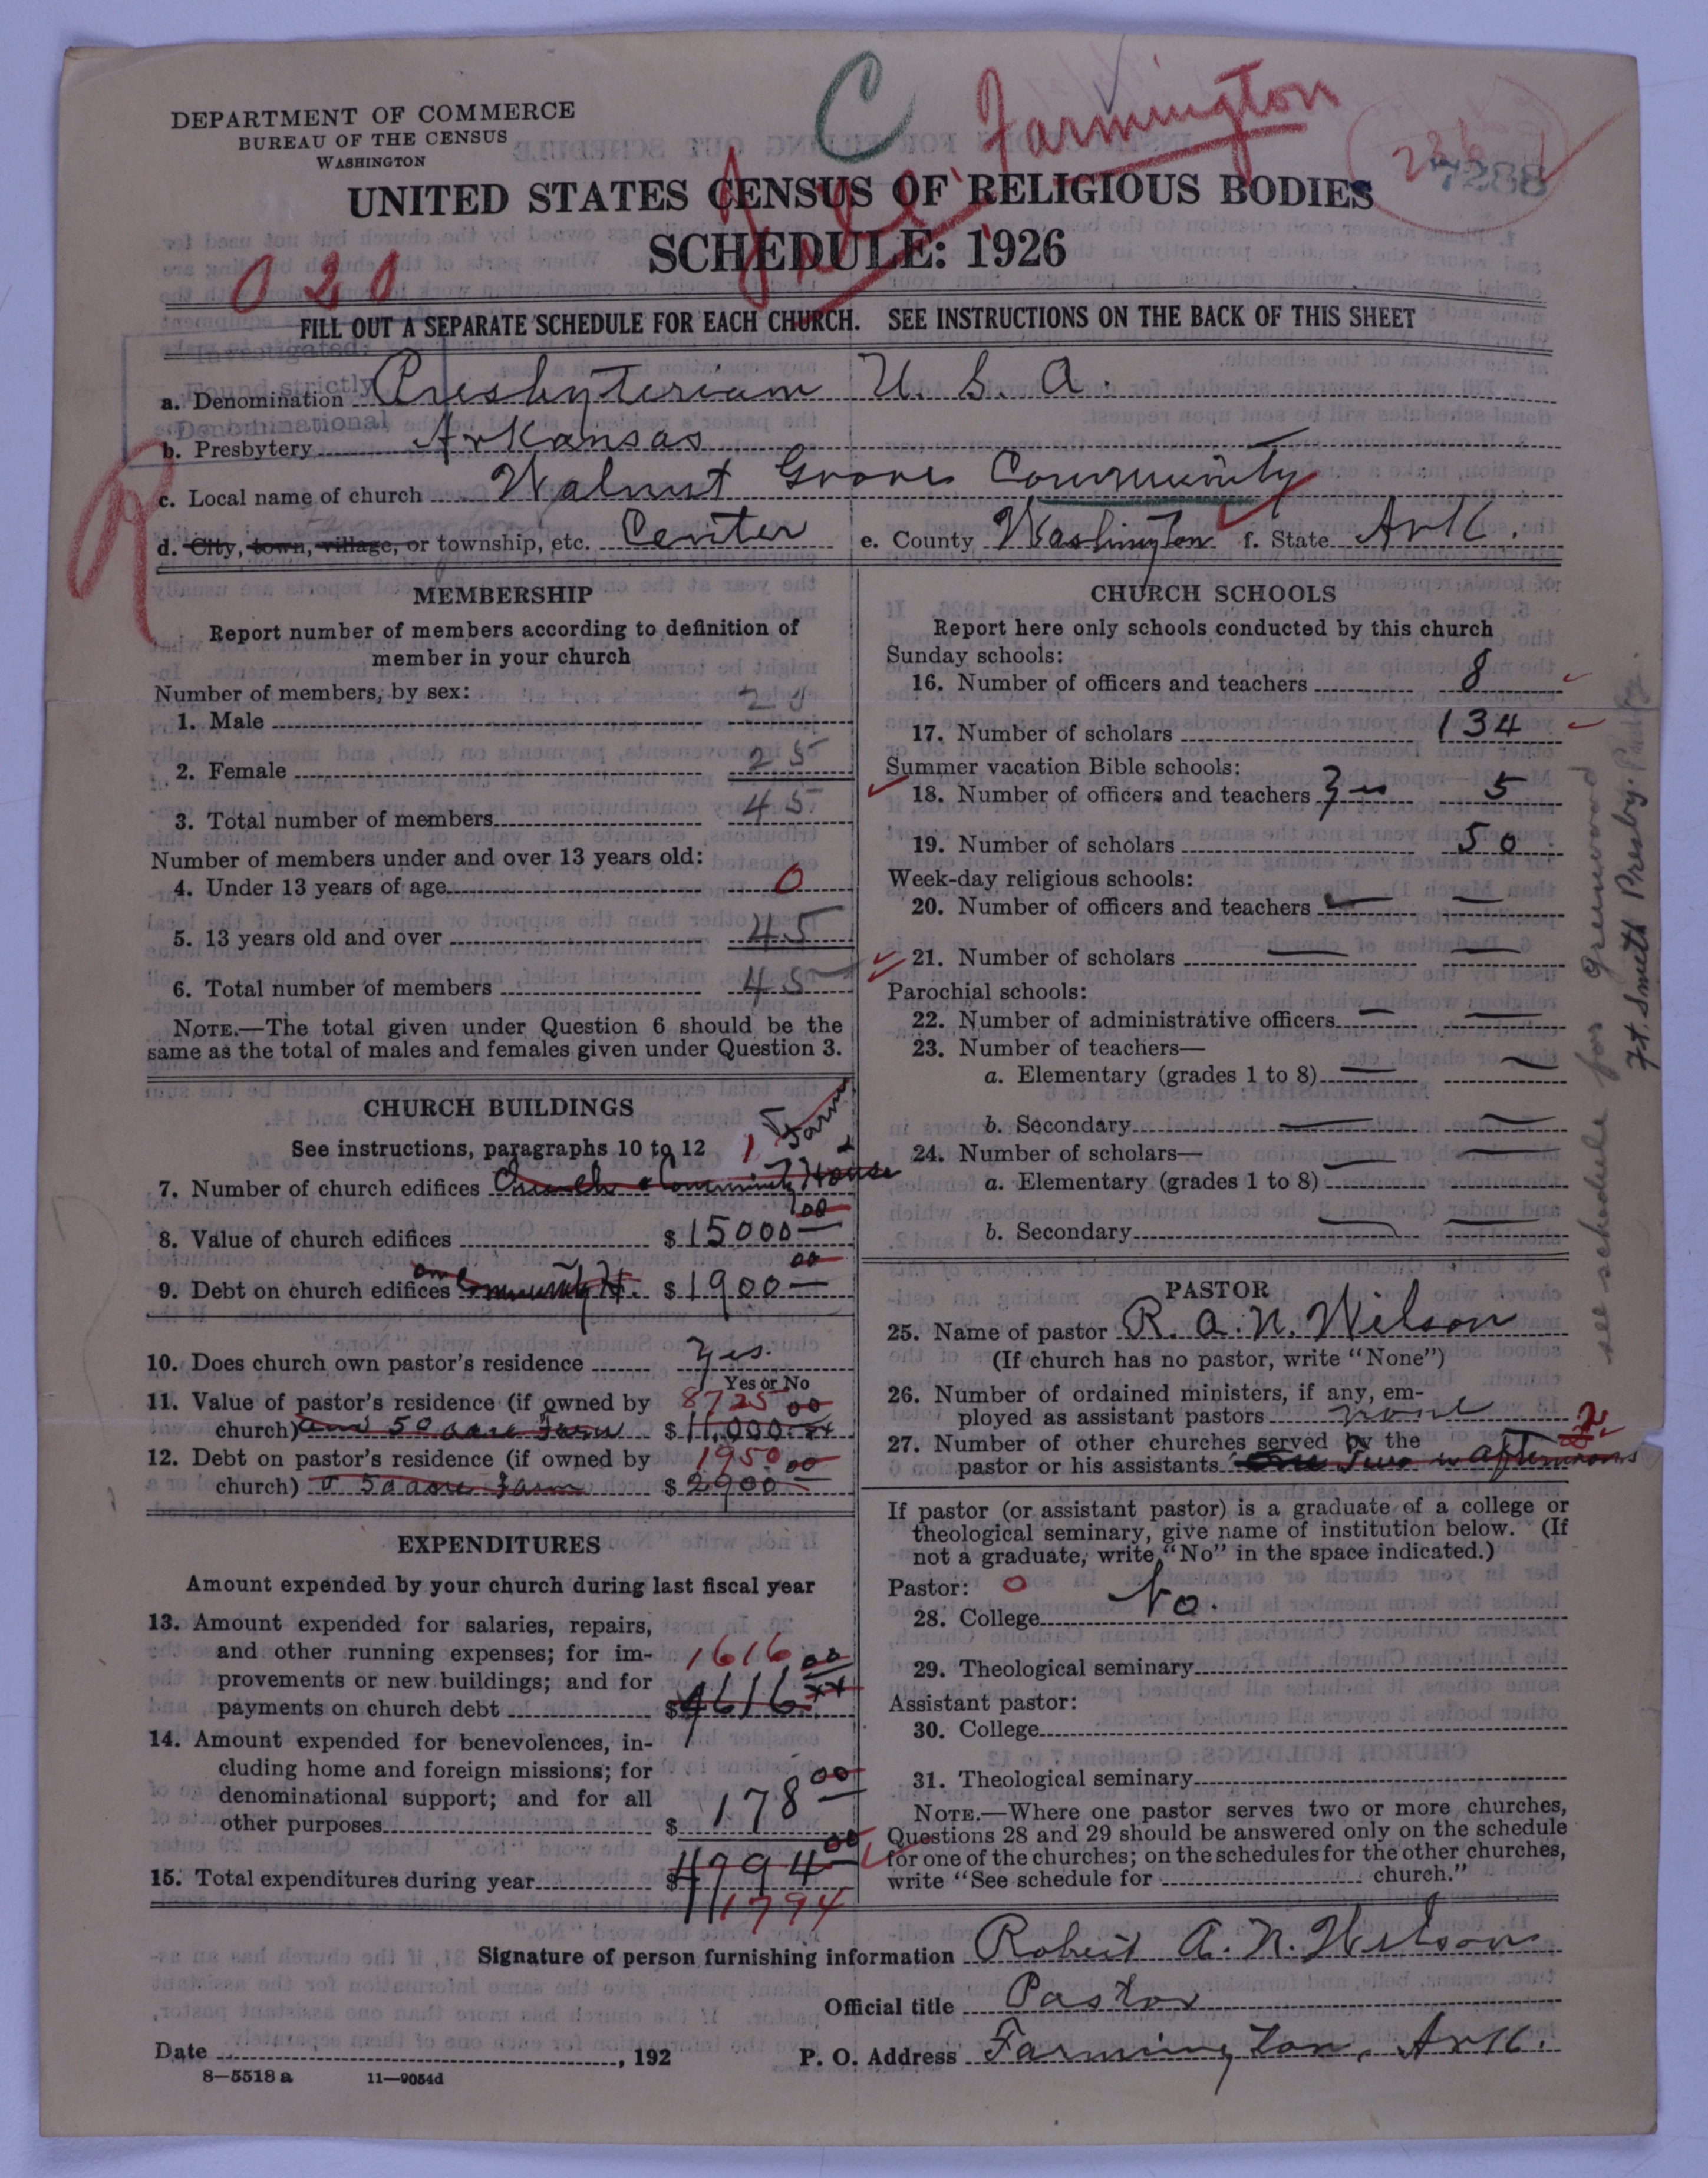 DEPARTMENT OF COMMERCE
BUREAU OF THE CENSUS
WASHINGTON
C
Farmington
7288
UNITED STATES CENSUS OF RELIGIOUS BODIES
SCHEDULE: 1926
020
FILL OUT A SEPARATE SCHEDULE FOR EACH CHURCH. SEE INSTRUCTIONS ON THE BACK OF THIS SHEET
Investigated:
Found strictly
Denominational
a. Denomination Presbyterian U. S. A.
b. Presbytery Arkansas
c. Local name of church Walnut Grove Community
d. City, town, village, or township, etc. Center e. County Washington f. State Ark.
MEMBERSHIP
Report number of members according to definition of
member in your church
Number of members, by sex:
1. Male 20
2. Female 25
3. Total number of members 45
Number of members under and over 13 years old:
4. Under 13 years of age 0
5. 13 years old and over 45
6. Total number of members 45
NOTE.—The total given under Question 6 should be the
same as the total of males and females given under Question 3.
CHURCH BUILDINGS
See instructions, paragraphs 10 to 12 1 Farm
7. Number of church edifices Church & Community House
8. Value of church edifices $15000 00
9. Debt on church edifices on Community H. $1900 00
10. Does church own pastor's residence Yes.
Yes or No
11. Value of pastor's residence (if owned by 8725 00
church) and 50 acre Farm $11,000
12. Debt on pastor's residence (if owned by 1950 00
church) & 50 acre Farm $2900
EXPENDITURES
Amount expended by your church during last fiscal year
13. Amount expended for salaries, repairs,
and other running expenses; for im- 1616 00
provements or new buildings; and for
payments on church debt $4616
14. Amount expended for benevolences, in-
cluding home and foreign missions; for
denominational support; and for all
other purposes $178 00
15. Total expenditures during year $4794 00
1794
CHURCH SCHOOLS
Report here only schools conducted by this church
Sunday schools:
16. Number of officers and teachers 8
17. Number of scholars 134
Summer vacation Bible schools:
18. Number of officers and teachers Yes 5
19. Number of scholars 50
Week-day religious schools:
20. Number of officers and teachers —
21. Number of scholars —
Parochial schools:
22. Number of administrative officers —
23. Number of teachers—
a. Elementary (grades 1 to 8) —
b. Secondary —
24. Number of scholars—
a. Elementary (grades 1 to 8) —
b. Secondary —
PASTOR
25. Name of pastor R. A. N. Wilson
(If church has no pastor, write "None")
26. Number of ordained ministers, if any, em-
ployed as assistant pastors none
27. Number of other churches served by the 2
pastor or his assistants Two in afternoons
If pastor (or assistant pastor) is a graduate of a college or
theological seminary, give name of institution below. (If
not a graduate, write "No" in the space indicated.)
Pastor: 0
28. College No.
29. Theological seminary
Assistant pastor:
30. College
31. Theological seminary
NOTE.—Where one pastor serves two or more churches,
Questions 28 and 29 should be answered only on the schedule
for one of the churches; on the schedules for the other churches,
write "See schedule for church."
see schedule for Greenwood
Ft. Smith Presby.
Signature of person furnishing information Robert A. N. Wilson
Official title Pastor
Date , 192 P. O. Address Farmington, Ark.
8—5518 a 11—9054d